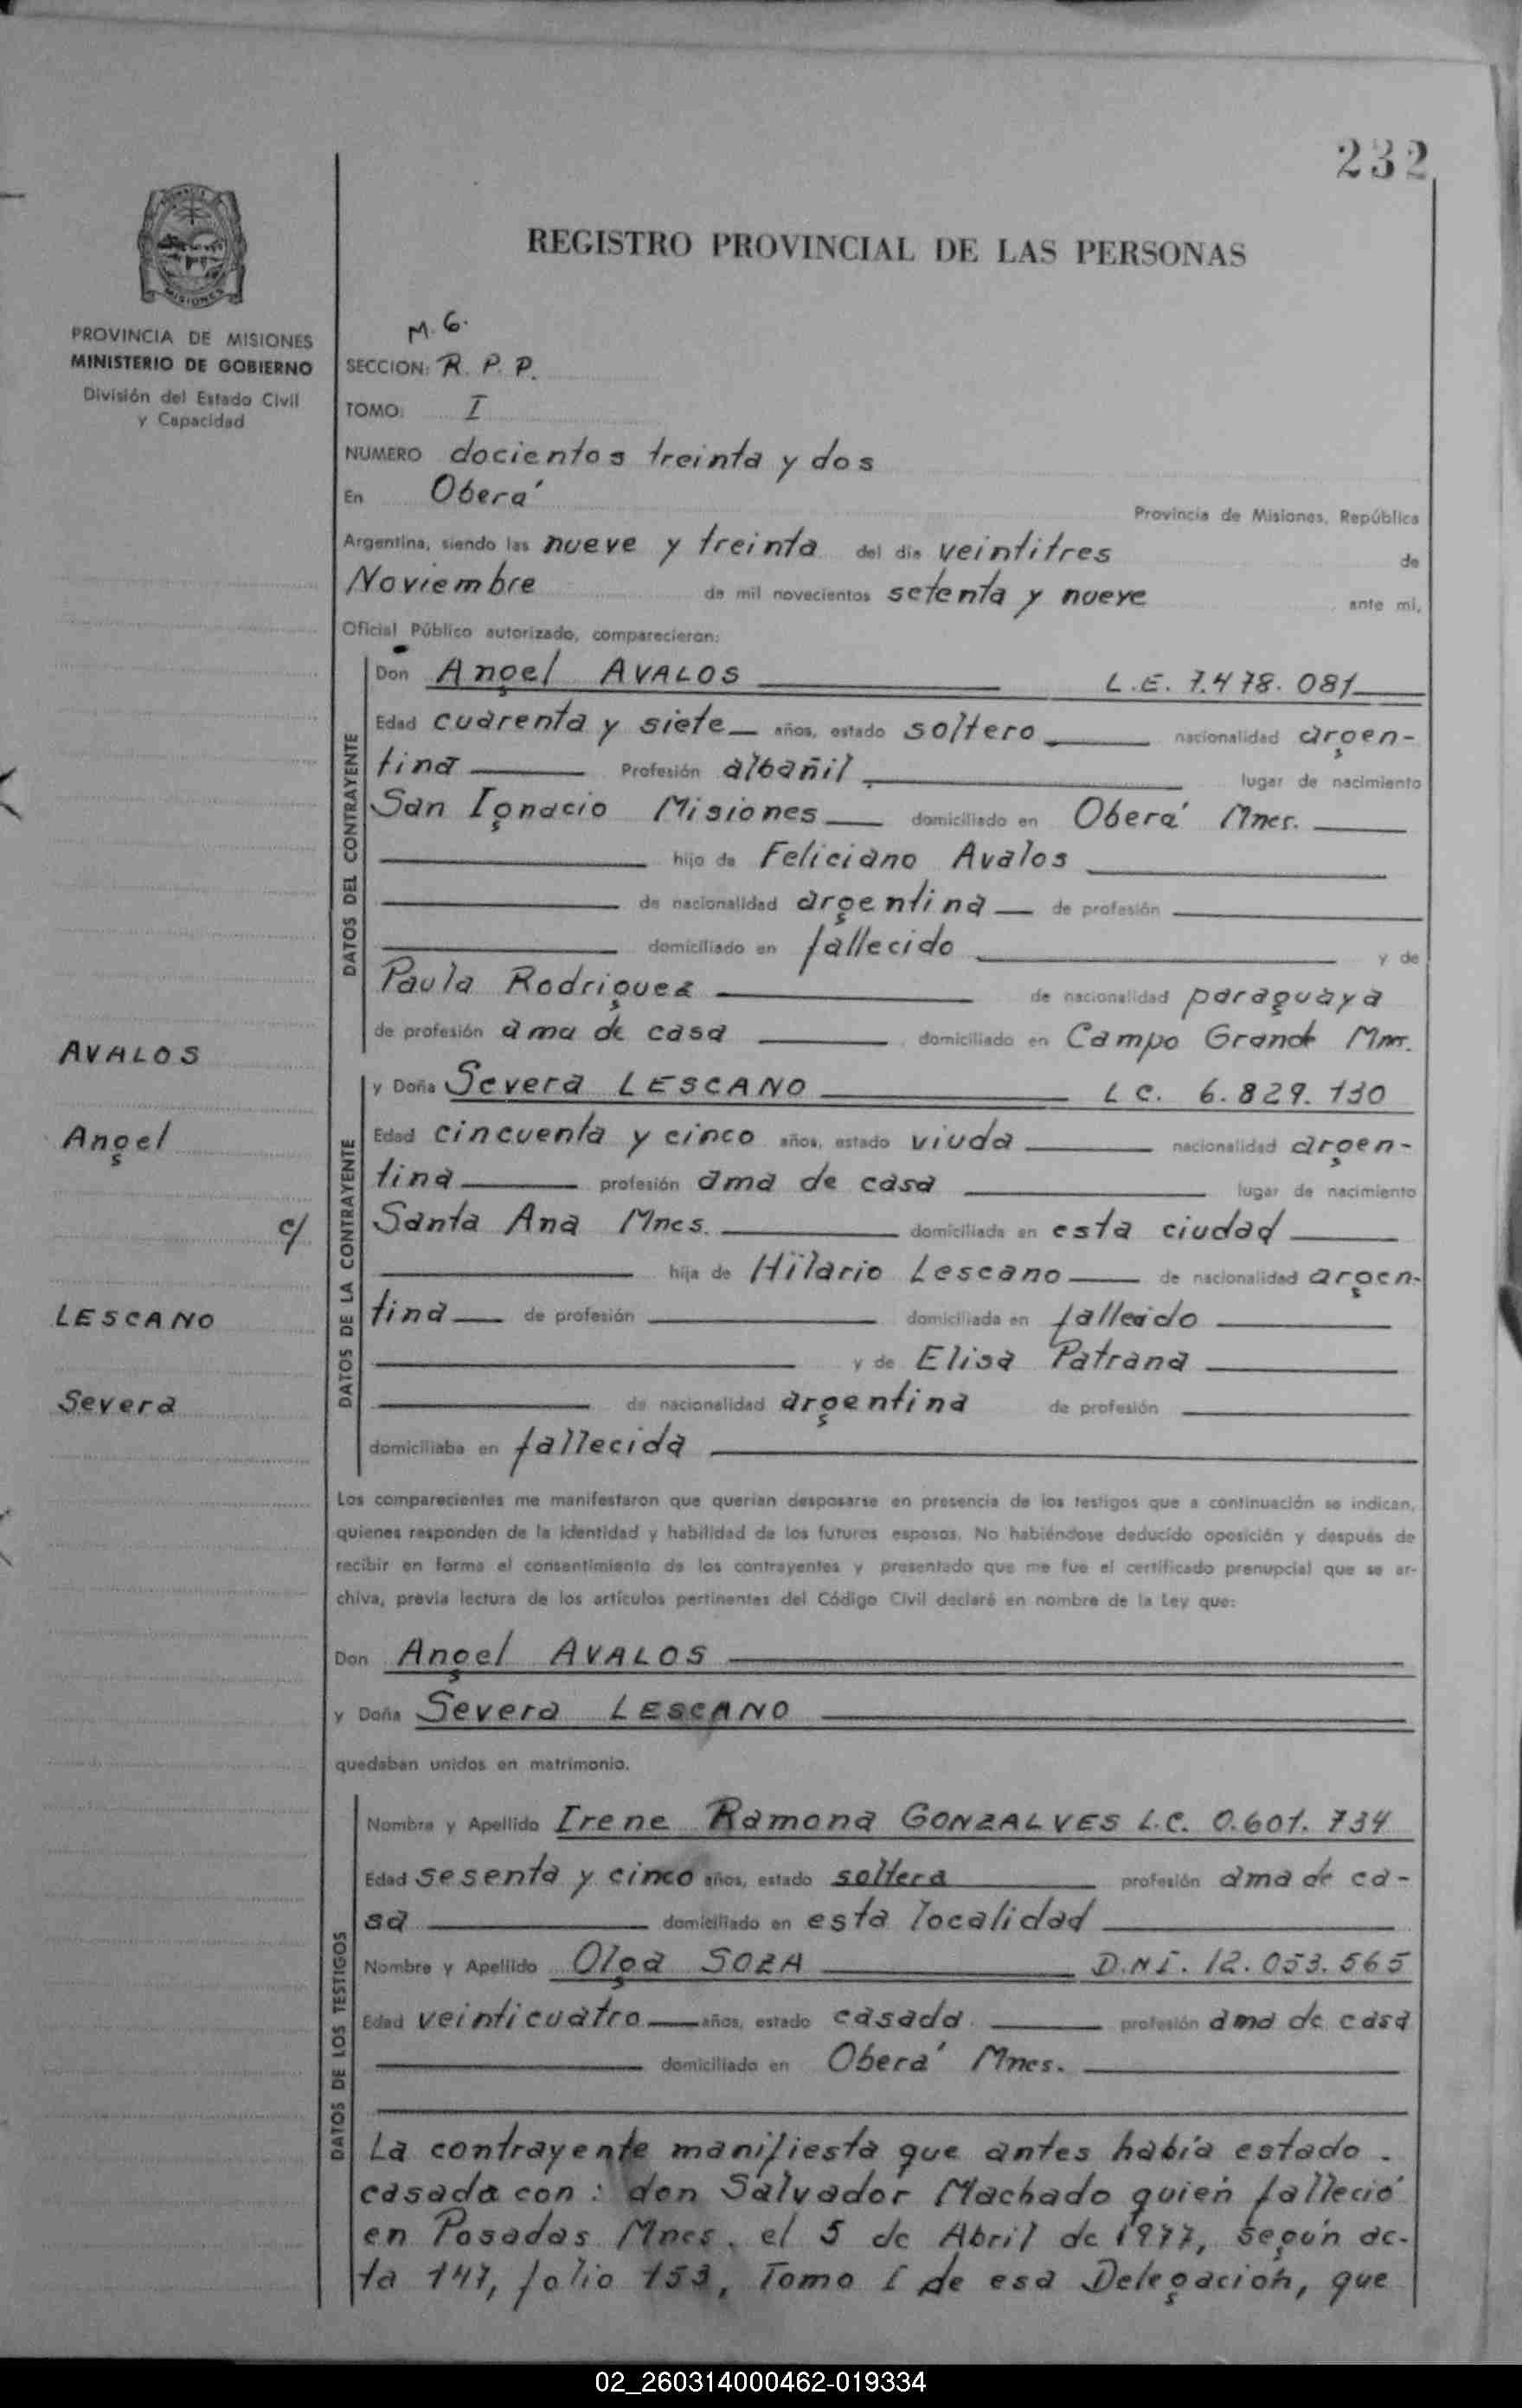 232
REGISTRO PROVINCIAL DE LAS PERSONAS
MISIONES
PROVINCIA DE MISIONES
MINISTERIO DE GOBIERNO
División del Estado Civil
y Capacidad
M. G.
SECCION: R. P. P.
TOMO: I
NUMERO docientos treinta y dos
En Oberá
Provincia de Misiones, República
Argentina, siendo las nueve y treinta del día veintitres de
Noviembre de mil novecientos setenta y nueve ante mí,
Oficial Público autorizado, comparecieron:
DATOS DEL CONTRAYENTE
Don Angel AVALOS L.E. 7.478.081
Edad cuarenta y siete años, estado soltero nacionalidad argen-
tina Profesión albañil lugar de nacimiento
San Ignacio Misiones domiciliado en Oberá Mnes.
hijo de Feliciano Avalos
de nacionalidad argentina de profesión
domiciliado en fallecido y de
Paula Rodriguez de nacionalidad paraguaya
de profesión ama de casa domiciliado en Campo Grande Mnes.
AVALOS
Angel
c/
LESCANO
Severa
DATOS DE LA CONTRAYENTE
y Doña Severa LESCANO L C. 6.829.130
Edad cincuenta y cinco años, estado viuda nacionalidad argen-
tina profesión ama de casa lugar de nacimiento
Santa Ana Mnes. domiciliada en esta ciudad
hija de Hilario Lescano de nacionalidad argen-
tina de profesión domiciliada en fallecido
y de Elisa Patrana
de nacionalidad argentina de profesión
domiciliaba en fallecida
Los comparecientes me manifestaron que querían desposarse en presencia de los testigos que a continuación se indican,
quienes responden de la identidad y habilidad de los futuros esposos. No habiéndose deducido oposición y después de
recibir en forma el consentimiento de los contrayentes y presentado que me fue el certificado prenupcial que se ar-
chiva, previa lectura de los artículos pertinentes del Código Civil declaré en nombre de la Ley que:
Don Angel AVALOS
y Doña Severa LESCANO
quedaban unidos en matrimonio.
DATOS DE LOS TESTIGOS
Nombre y Apellido Irene Ramona GONZALVES L.C. 0.601.734
Edad sesenta y cinco años, estado soltera profesión ama de ca-
sa domiciliado en esta localidad
Nombre y Apellido Olga SOZA D.N.I. 12.053.565
Edad veinticuatro años, estado casada profesión ama de casa
domiciliado en Oberá Mnes.
La contrayente manifiesta que antes había estado
casada con: don Salvador Machado quien falleció
en Posadas Mnes. el 5 de Abril de 1977, según ac-
ta 147, folio 153, Tomo I de esa Delegación, que
02_260314000462-019334